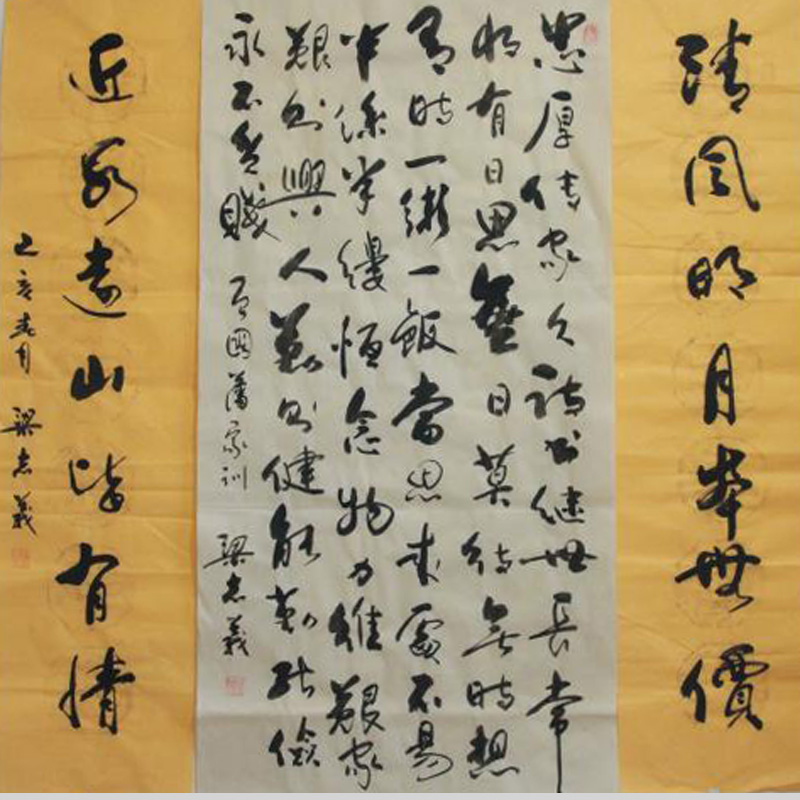 清風明月本無價
忠厚傳家久詩書繼世長常
將有日思無日莫待無時想
有時一粥一飯當思來處不易
半絲半縷恒念物力維艱家
勤則興人勤則健能勤能儉
永不貧賤 曾國藩家訓 梁志義
近水遠山皆有情
己亥春月 梁志義